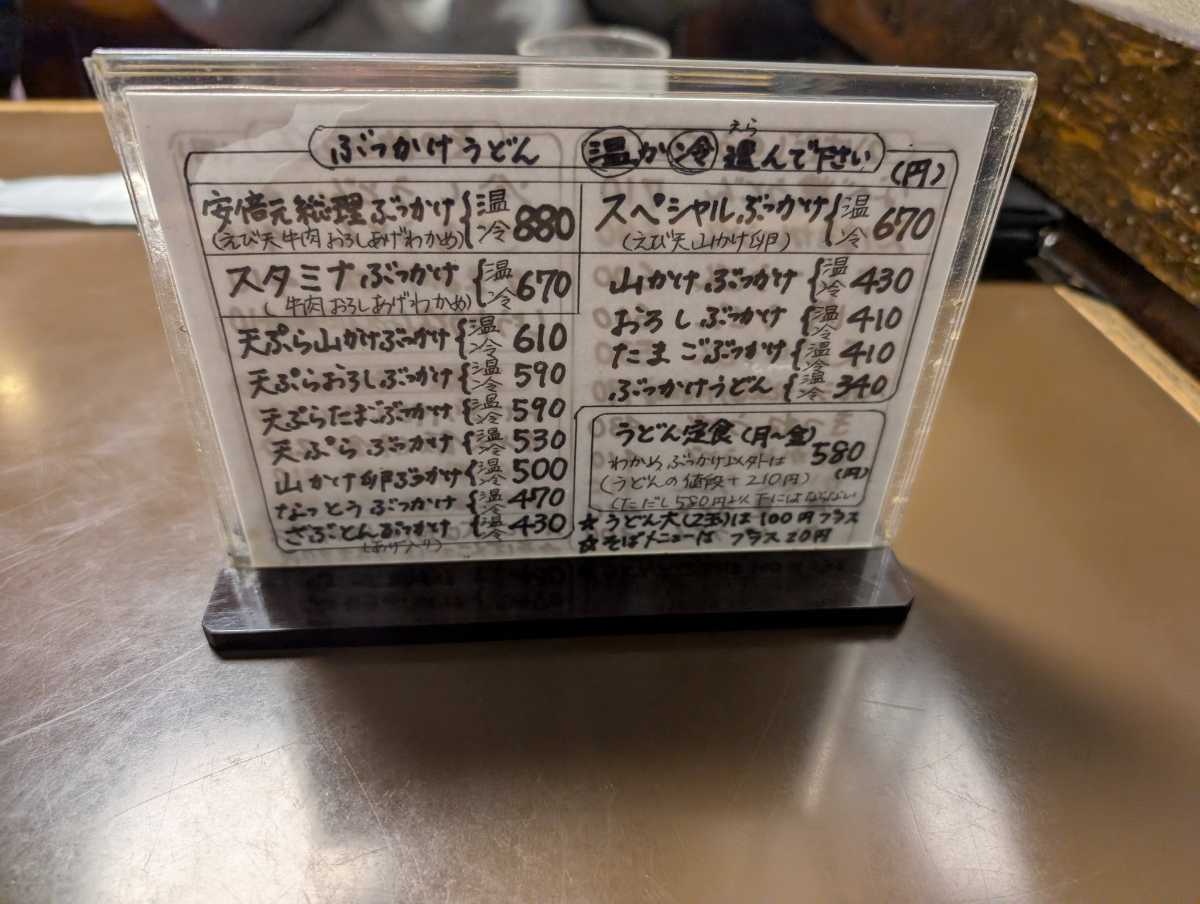 ぶっかけうどん 温か冷 選んで下さい (円)
えら
安倍元総理ぶっかけ{温冷 880
(えび天牛肉おろしあげわかめ)
スタミナぶっかけ{温冷 670
(牛肉おろしあげわかめ)
天ぷら山かけぶっかけ{温冷 610
天ぷらおろしぶっかけ{温冷 590
天ぷらたまごぶっかけ{温冷 590
天ぷらぶっかけ{温冷 530
山かけ卵ぶっかけ{温冷 500
なっとうぶっかけ{温冷 470
ざぶとんぶっかけ{温冷 430
(あげ入り)
スペシャルぶっかけ{温冷 670
(えび天山かけ卵)
山かけぶっかけ{温冷 430
おろしぶっかけ{温冷 410
たまごぶっかけ{温冷 410
ぶっかけうどん{温冷 340
うどん定食(月~金) 580
わかめぶっかけ以外は (円)
(うどんの値段+210円)
(ただし580円以下にはならない
☆うどん大(2玉)は100円プラス
☆そばメニューは プラス20円